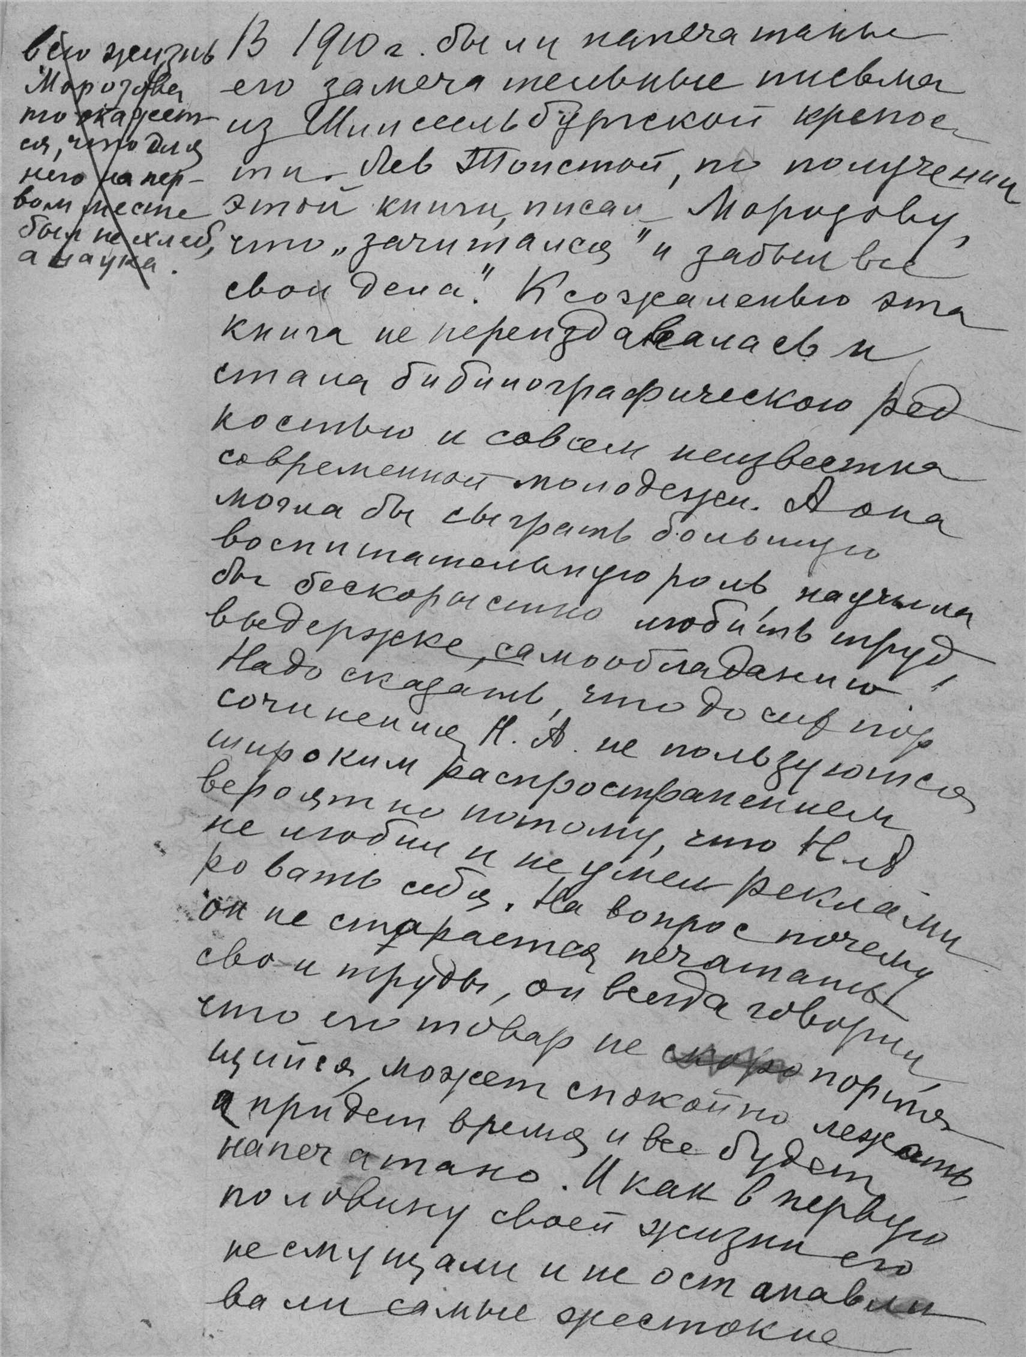 всю жизнь
Морозова
то окажет-
ся, что для
него на пер-
вом месте
был не хлеб,
а наука.
В 1910 г. были напечатаны
его замечательные письма
из Шлиссельбургской крепос-
ти. Лев Толстой, по получении
этой книги, писал Морозову,
что „зачитался" и забыл все
свои дела". К сожаленью эта
книга не переиздавалась и
стала библиографическою ред
костью и совсем неизвестна
современной молодежи. А она
могла бы сыграть большую
воспитательную роль, научила
бы бескорыстно любить труд,
выдержке, самообладанию.
Надо сказать, что до сих пор
сочинения Н. А. не пользуются
широким распространением
вероятно потому, что Н А
не любил и не умел реклами
ровать себя. На вопрос почему
он не старается печатать
свои труды, он всегда говорил,
что его товар не скоро портя
щийся, может спокойно лежать,
а придет время и все будет
напечатано. И как в первую
половину своей жизни его
не смущали и не останавли
вали самые жестокие